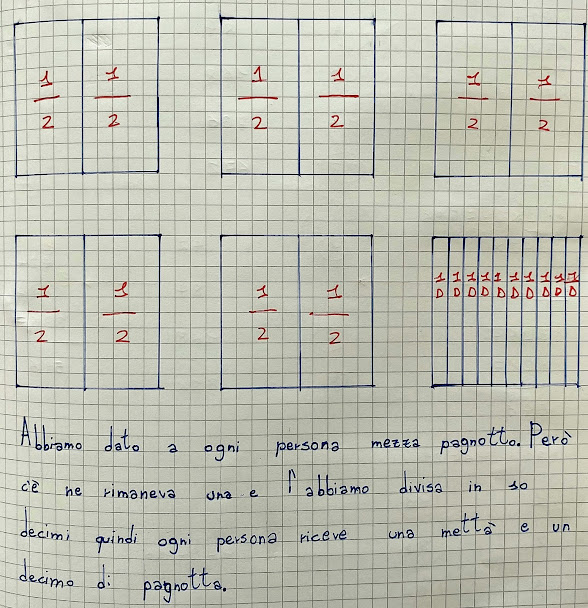 1/2 1/2 1/2 1/2 1/2 1/2
1/2 1/2 1/2 1/2 1/D 1/D 1/D 1/D 1/D 1/D 1/D 1/D 1/D 1/D
Abbiamo dato a ogni persona mezza pagnotto. Però
c'è ne rimaneva una e l'abbiamo divisa in 10
decimi quindi ogni persona riceve una mettà e un
decimo di pagnotta.